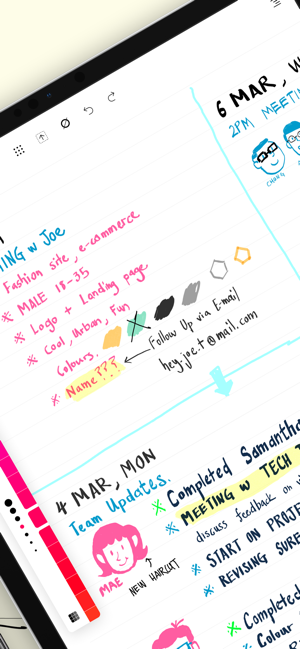 ING w Joe
Fashion site, e-commerce
MALE 18-35
Logo + Landing page
Cool, Urban, Fun
Colours.
Name???
Follow Up via E-mail
hey.joe.t@mail.com
6 MAR, W
2PM MEETIN
4 MAR, MON
Team Updates.
MAE
NEW HAIRCUT
Completed Samantha
MEETING w TECH T
discuss feedback on
START ON PROJE
REVISING SURE
Completed
Colour